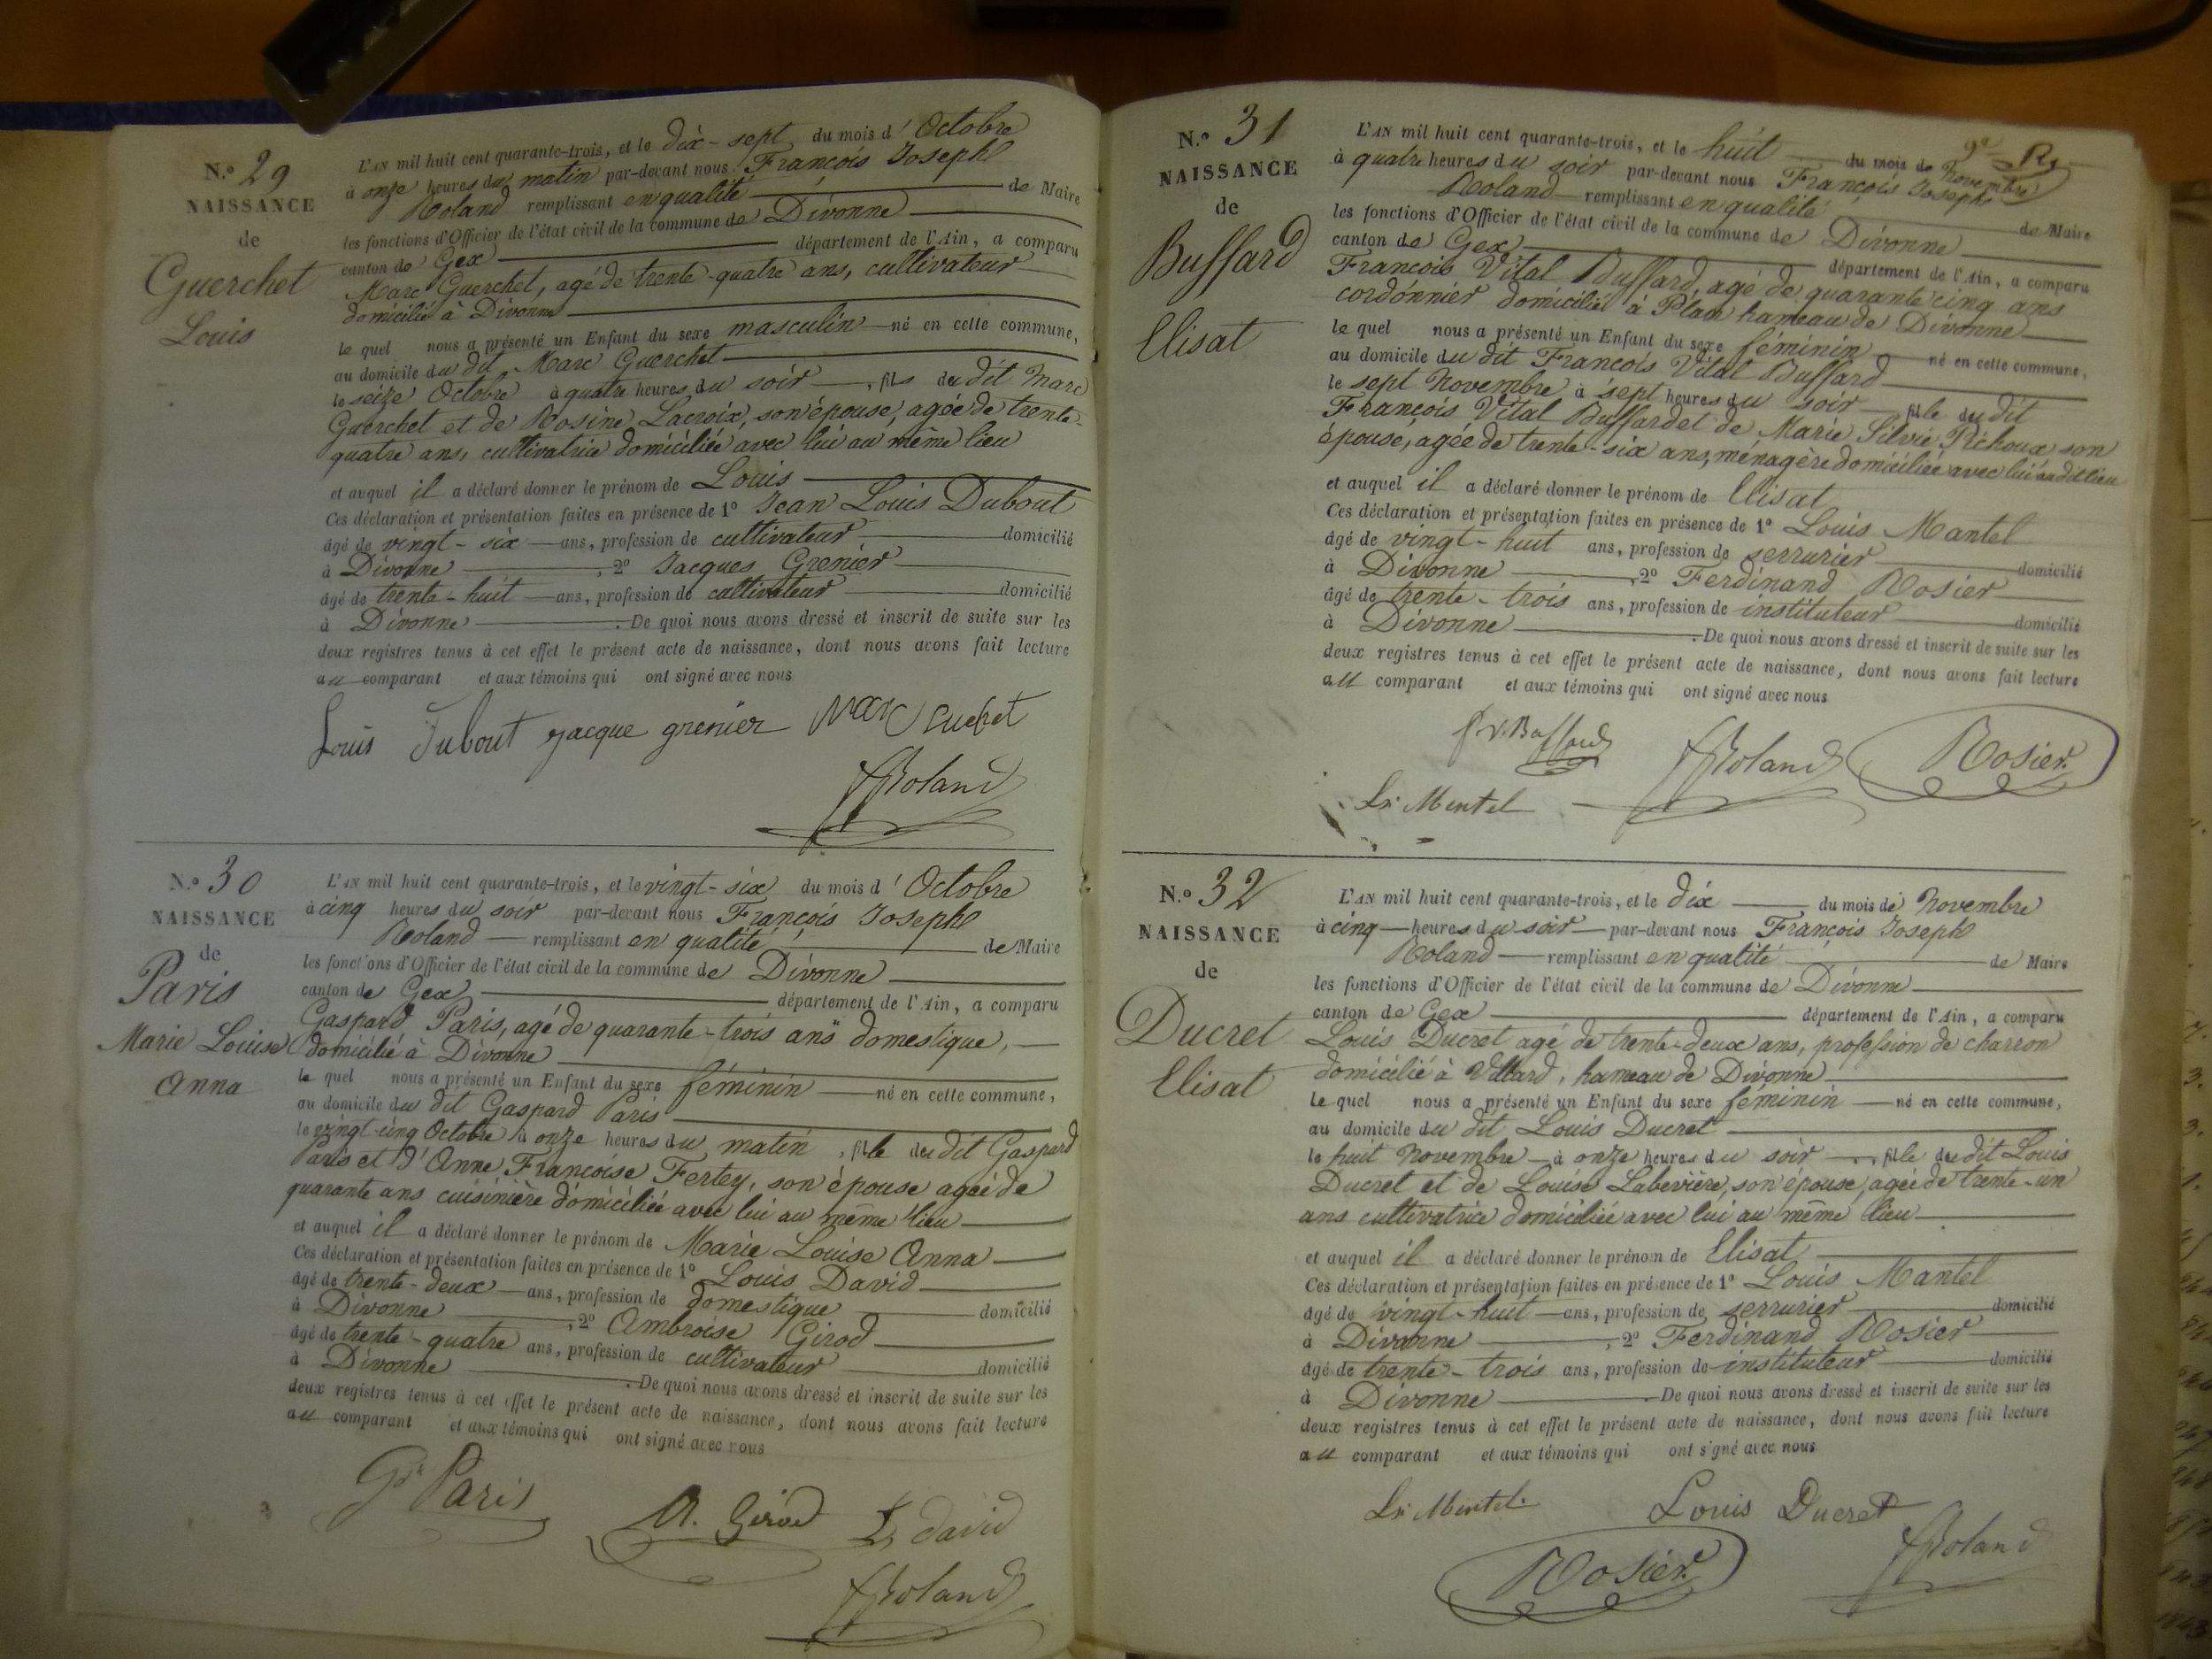 N.º 29
NAISSANCE
de
Guerchet
Louis
L'AN mil huit cent quarante-trois, et le dix-sept du mois d'Octobre
à onze heures du matin par-devant nous François Joseph
Roland remplissant en qualité de Maire
les fonctions d'Officier de l'état civil de la commune de Divonne
canton de Gex département de l'Ain, a comparu
Marc Guerchet, agé de trente-quatre ans, cultivateur
domicilié à Divonne
le quel nous a présenté un Enfant du sexe masculin né en cette commune,
au domicile du dit Marc Guerchet
le seize Octobre à quatre heures du soir, fils du dit Marc
Guerchet et de Rosine Lacroix, son épouse, agée de trente-
quatre ans, cultivatrice domiciliée avec lui au même lieu
et auquel il a déclaré donner le prénom de Louis
Ces déclaration et présentation faites en présence de 1º Jean Louis Dubout
âgé de vingt-six ans, profession de cultivateur domicilié
à Divonne, 2º Jacques Grenier
âgé de trente-huit ans, profession de cultivateur domicilié
à Divonne. De quoi nous avons dressé et inscrit de suite sur les
deux registres tenus à cet effet le présent acte de naissance, dont nous avons fait lecture
au comparant et aux témoins qui ont signé avec nous
Louis Dubout jacque grenier Marc
Roland
N.º 30
NAISSANCE
de
Paris
Marie Louise
Anna
L'AN mil huit cent quarante-trois, et le vingt-six du mois d'Octobre
à cinq heures du soir par-devant nous François Joseph
Roland remplissant en qualité de Maire
les fonctions d'Officier de l'état civil de la commune de Divonne
canton de Gex département de l'Ain, a comparu
Gaspard Paris, agé de quarante-trois ans domestique,
domicilié à Divonne
le quel nous a présenté un Enfant du sexe féminin né en cette commune,
au domicile du dit Gaspard Paris
le vingt-cinq Octobre à onze heures du matin, fille du dit Gaspard
Paris et d'Anne Françoise Fertey, son épouse agée de
quarante ans cuisinière domiciliée avec lui au même lieu
et auquel il a déclaré donner le prénom de Marie Louise Anna
Ces déclaration et présentation faites en présence de 1º Louis David
âgé de trente-deux ans, profession de domestique domicilié
à Divonne, 2º Ambroise Girod
âgé de trente-quatre ans, profession de cultivateur domicilié
à Divonne. De quoi nous avons dressé et inscrit de suite sur les
deux registres tenus à cet effet le présent acte de naissance, dont nous avons fait lecture
au comparant et aux témoins qui ont signé avec nous
Paris A. Girod Ls David
Roland
N.º 31
NAISSANCE
de
Buffard
Elisat
L'AN mil huit cent quarante-trois, et le huit du mois de Novembre
à quatre heures du soir par-devant nous François Joseph
Roland remplissant en qualité de Maire
les fonctions d'Officier de l'état civil de la commune de Divonne
canton de Gex département de l'Ain, a comparu
François Vital Buffard, agé de quarante cinq ans
cordonnier domicilié à Plan hameau de Divonne
le quel nous a présenté un Enfant du sexe féminin né en cette commune,
au domicile du dit François Vital Buffard
le sept Novembre à sept heures du soir fille du dit
François Vital Buffard et de Marie Silvie Pichoux son
épouse, agée de trente-six ans, ménagère domiciliée avec lui au dit lieu
et auquel il a déclaré donner le prénom de Elisat
Ces déclaration et présentation faites en présence de 1º Louis Mantel
âgé de vingt-huit ans, profession de serrurier domicilié
à Divonne, 2º Ferdinand Rosier
âgé de trente-trois ans, profession de instituteur domicilié
à Divonne. De quoi nous avons dressé et inscrit de suite sur les
deux registres tenus à cet effet le présent acte de naissance, dont nous avons fait lecture
au comparant et aux témoins qui ont signé avec nous
f. v. Buffard Roland Rosier
Ls Mentel
N.º 32
NAISSANCE
de
Ducret
Elisat
L'AN mil huit cent quarante-trois, et le dix du mois de Novembre
à cinq heures du soir par-devant nous François Joseph
Roland remplissant en qualité de Maire
les fonctions d'Officier de l'état civil de la commune de Divonne
canton de Gex département de l'Ain, a comparu
Louis Ducret agé de trente-deux ans, profession de charron
domicilié à Villard, hameau de Divonne
le quel nous a présenté un Enfant du sexe féminin né en cette commune,
au domicile du dit Louis Ducret
le huit Novembre à onze heures du soir, fille du dit Louis
Ducret et de Louise Labevière, son épouse, agée de trente-un
ans cultivatrice domiciliée avec lui au même lieu
et auquel il a déclaré donner le prénom de Elisat
Ces déclaration et présentation faites en présence de 1º Louis Mantel
âgé de vingt-huit ans, profession de serrurier domicilié
à Divonne, 2º Ferdinand Rosier
âgé de trente-trois ans, profession de instituteur domicilié
à Divonne. De quoi nous avons dressé et inscrit de suite sur les
deux registres tenus à cet effet le présent acte de naissance, dont nous avons fait lecture
au comparant et aux témoins qui ont signé avec nous
Ls Mentel Louis Ducret
Rosier Roland